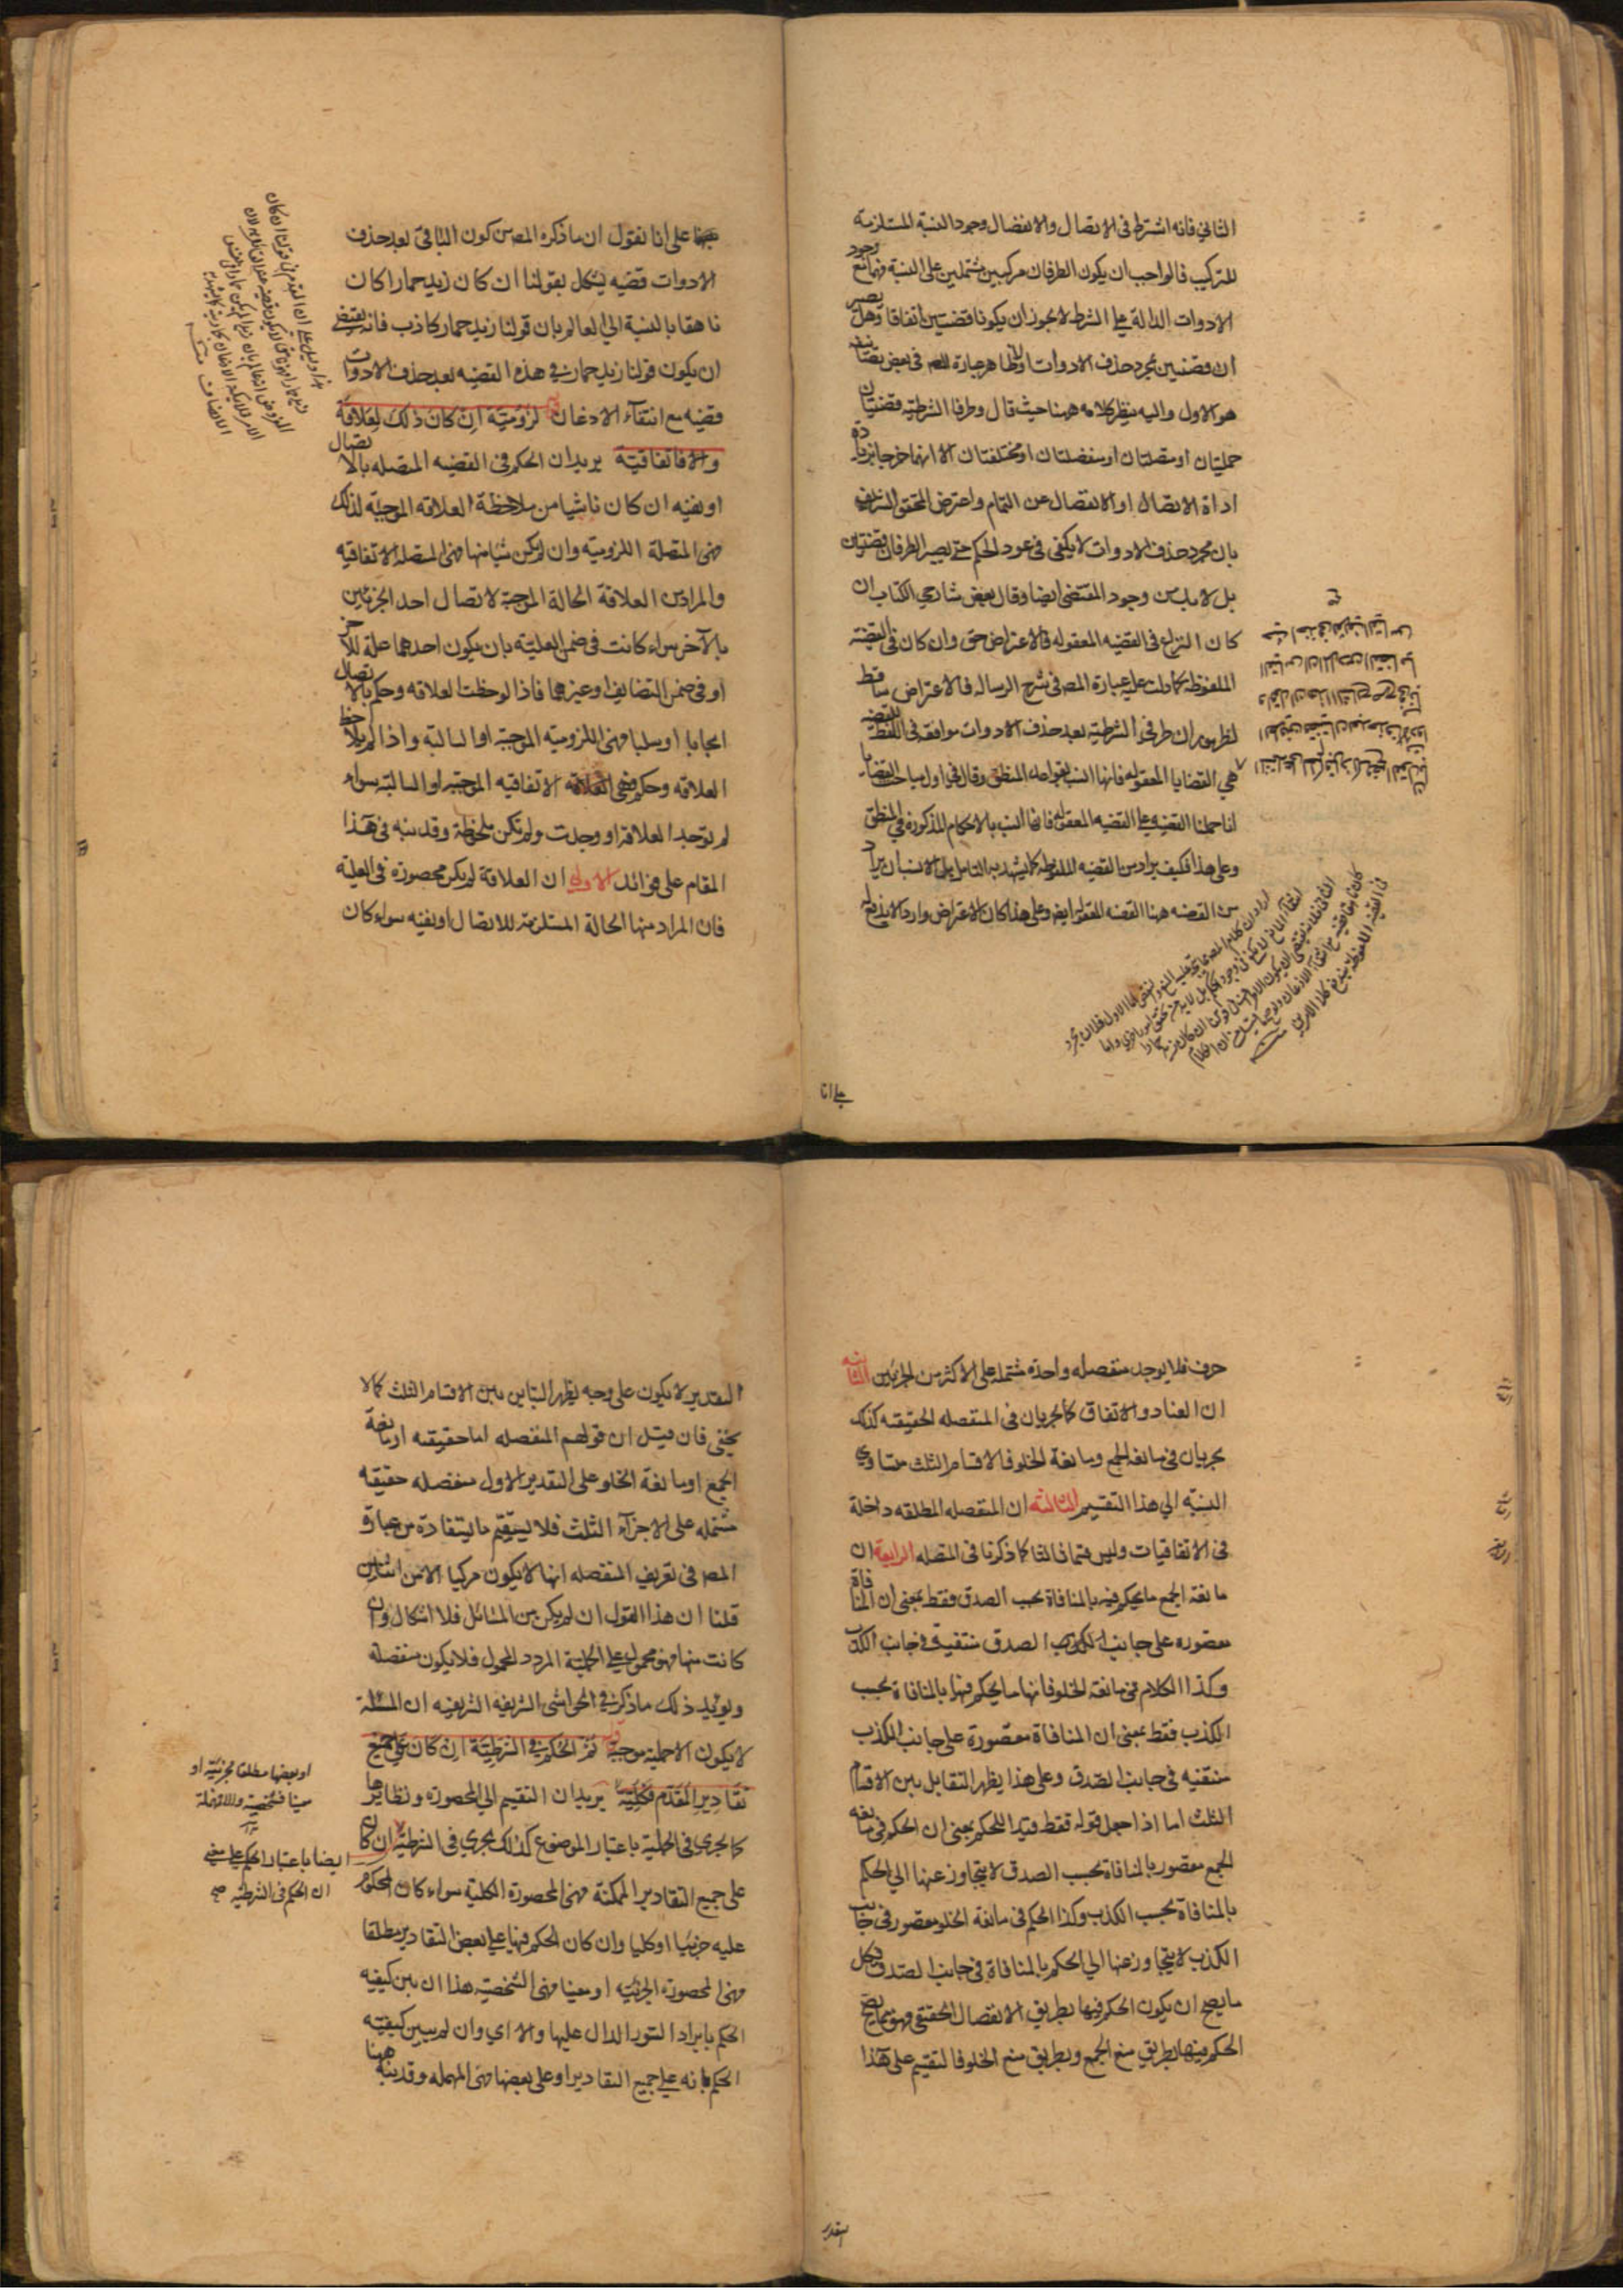 الثاني فانه اشترط فى الاتصال والانفصال وجود النسبة المستلزمة
للتركيب فالواجب ان يكون الطرفان مركبين مشتملين على النسبة فمع وجود
الادوات الدالة على الشرط لا يجوز ان يكونا قضيتين اتفاقا وهل يصير
ان قضيتين بمجرد حذف الادوات او لا ظاهر عبارة المص فى بعض تصانيفه
هو الاول واليه ينظر كلامه ههنا حيث قال وطرفا الشرطية قضيتان
حمليتان او متصلتان او منفصلتان او مختلفتان الا انهما خرجا بزيادة
اداة الاتصال او الانفصال عن التمام واعترض المحقق الشريف
بان مجرد حذف الادوات لا يكفى فى عود الحكم حتى يصير الطرفان قضيتين
بل لا بد من وجود المقتضى ايضا وقال بعض شارحي الكتاب ان
كان النزاع فى القضيه المعقوله فالاعتراض حق وان كان فى القضية
الملفوظه كما دلت عليه عبارة المص فى شرح الرساله فالاعتراض ساقط
لظهور ان طرفى الشرطية بعد حذف الادوات موافقه فى اللفظ للقضيه
هي القضايا المعقوله فانها انسب بقواعد المنطق وقال فى اول مباحث القضايا
انا حملنا القضيه على القضيه المعقوله فانها انسب بالاحكام المذكورة فى المنطق
وعلى هذا فكيف يراد من القضيه الملفوظه كما يشهد به التامل بل الانسب ان يراد
من القضيه هنا القضيه المعقوله ايضا وعلى هذا كان الاعتراض واردا لا يندفع
على انا
على انا نقول ان ما ذكره المص من كون الباقى بعد حذف
الادوات قضيه يشكل بقولنا ان كان زيد حمارا كان
ناهقا بالنسبة الى العالم بان قولنا زيد حمار كاذب فانه يقتضى
ان يكون قولنا زيد حمار فى هذه القضيه بعد حذف الادوات
قضيه مع انتفاء الاذعان لزومية ان كان ذلك لعلاقة
والا فاتفاقية يريد ان الحكم فى القضيه المتصله بالاتصال
او نفيه ان كان ناشيا من ملاحظة العلاقه الموجبة لذلك
فهى المتصلة اللزوميه وان لم يكن شيا منها فهى المتصله الاتفاقيه
والمراد من العلاقة الحالة الموجبة لاتصال احد الجزئين
بالاخر سواء كانت فى ضمن العلية بان يكون احدهما علة للاخر
او فى ضمن التضايف او غيرهما فاذا لوحظت العلاقه وحكم بالاتصال
ايجابا او سلبا فهى اللزوميه الموجبة او السالبة واذا لم يلاحظ
العلاقه وحكم فهى الاتفاقيه الموجبه او السالبة سواء
لم توجد العلاقة او وجدت ولم تكن ملحوظة وقد نبه فى هذا
المقام على فوائد الاولى ان العلاقة لم يكن محصورة فى العلية
فان المراد منها الحالة المستلزمة للاتصال او نفيه سواء كان
حرف فلا يوجد منفصله واحدة مشتمله على الاكثر من الجزئين الثانيه
ان العناد والاتفاق كما يجريان فى المنفصله الحقيقيه كذلك
يجريان فى مانعة الجمع ومانعة الخلو فالاقسام الثلث متساوي
النسبة الى هذا التقسيم الثالثه ان المنفصله المطلقه داخلة
فى الاتفاقيات وليس قسما ثالثا كما ذكرنا فى المتصله الرابعة ان
مانعة الجمع ما يحكم فيه بالمنافاة بحسب الصدق فقط بمعنى ان المنافاة
مقصوره على جانب الصدق منتفية فى جانب الكذب
وكذا الكلام فى مانعة الخلو فانها ما يحكم فيها بالمنافاة بحسب
الكذب فقط بمعنى ان المنافاة مقصورة على جانب الكذب
منتفيه فى جانب الصدق وعلى هذا يظهر التقابل بين الاقسام
الثلث اما اذا جعل قوله فقط قيدا للحكم بمعنى ان الحكم فى مانعة
الجمع مقصور بالمنافاة بحسب الصدق لا يتجاوز عنها الى الحكم
بالمنافاة بحسب الكذب وكذا الحكم فى مانعة الخلو مقصور فى جانب
الكذب لا يتجاوز عنها الى الحكم بالمنافاة فى جانب الصدق فكل
ما يصح ان يكون الحكم فيها بطريق الانفصال الحقيقى فهو مما يصح
الحكم فيها بطريق منع الجمع وبطريق منع الخلو فالتقسيم على هذا
التقدير
التقدير لا يكون على وجه يظهر التباين بين الاقسام الثلث كما لا
يخفى فان قيل ان قولهم المنفصله اما حقيقيه او مانعة
الجمع او مانعة الخلو على التقدير الاول منفصله حقيقيه
مشتمله على الاجزآء الثلث فلا يستقيم ما يستفاد من عبارة
المص فى تعريف المنفصله انها لا يكون مركبا الا من اثنين
قلنا ان هذا القول ان لم يكن من المسائل فلا اشكال وان
كانت منها فهو محمول على الحملية المردد المحمول فلا يكون منفصلة
ويؤيد ذلك ما ذكر فى الحواشى الشريفه الشريفيه ان المسئلة
لا يكون الا حملية موجبة ثم الحكم فى الشرطية ان كان على جميع
تقادير المقدم فكلية يريد ان التقسيم الى المحصوره ونظايرها
كما يجرى فى الحملية باعتبار الموضوع كذلك يجرى فى الشرطية ان كان
على جميع التقادير الممكنة فهى المحصورة الكلية سواء كان المحكوم
عليه جزئيا او كليا وان كان الحكم فيها على بعض التقادير مطلقا
فهى المحصورة الجزئيه او معينا فهى الشخصية هذا ان بين كيفيه
الحكم بايراد السور الدال عليها والا اي وان لم يبين كيفيته
الحكم بانه على جميع التقادير او على بعضها فهى المهمله وقد نبه ههنا
او بعضها مطلقا فجزئية او
معينا فشخصية والا فمهملة
ايضا باعتبار الحكم على معنى
ان الحكم فى الشرطيه صح